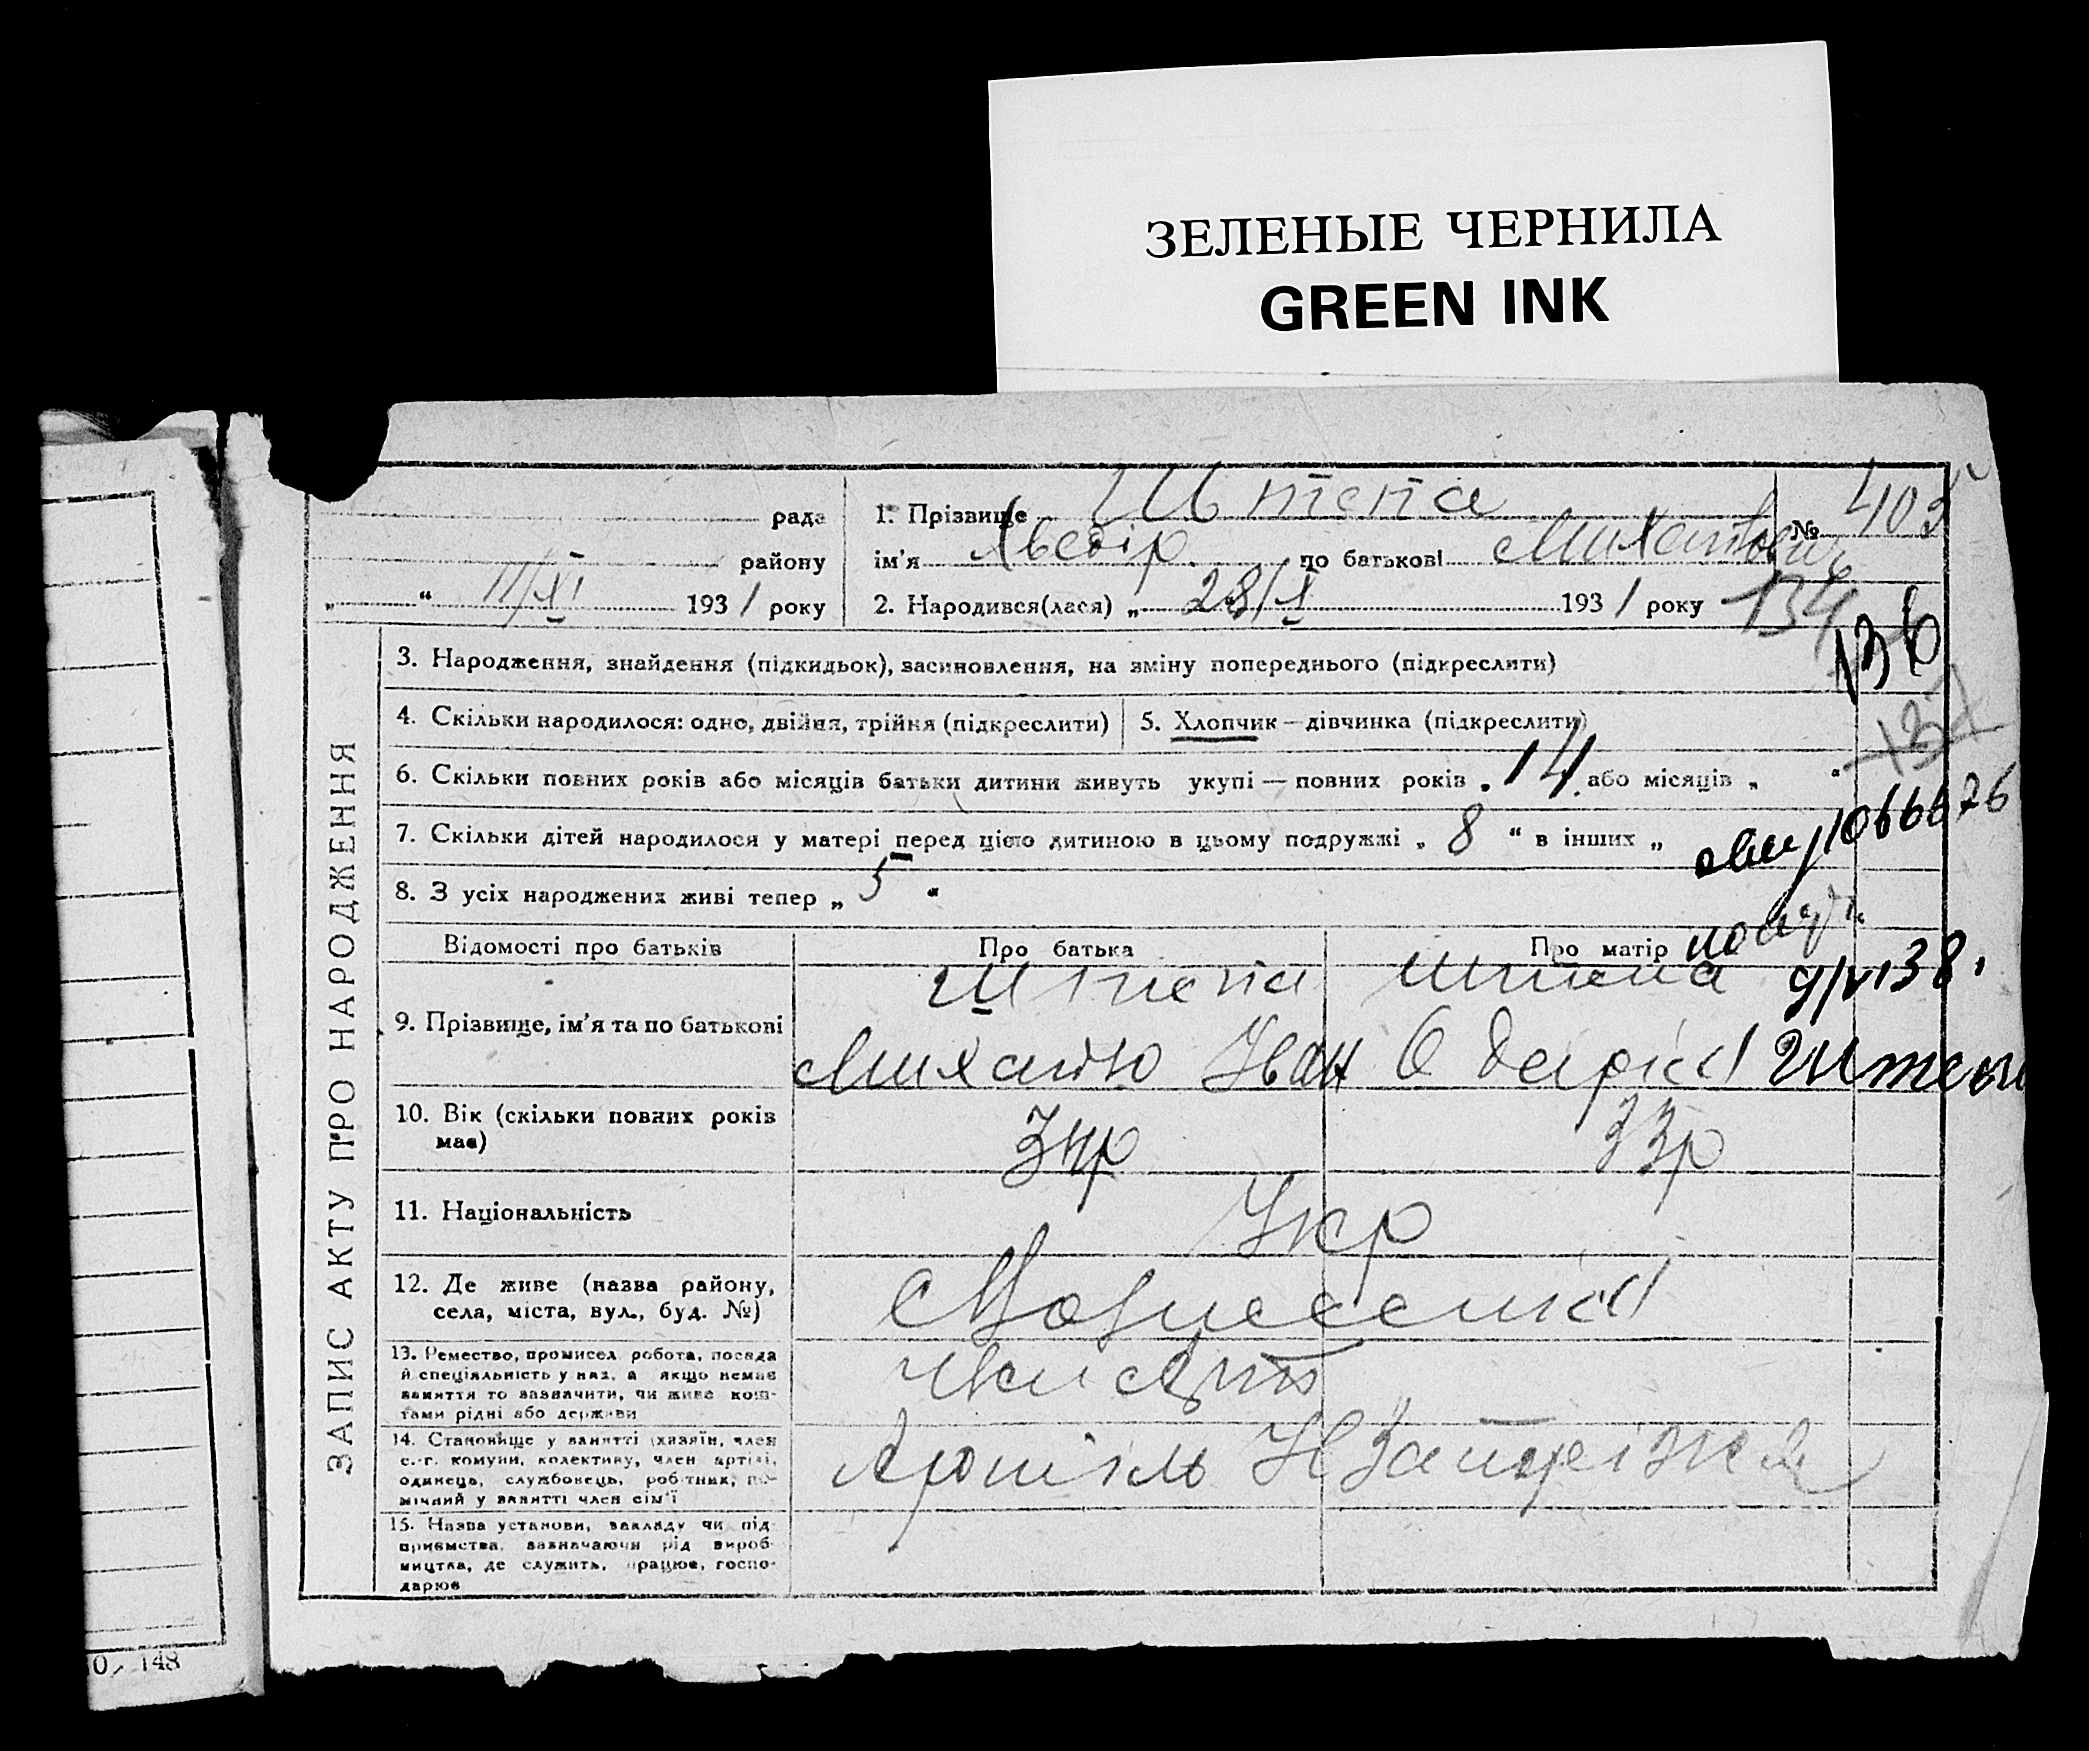 ЗЕЛЕНЫЕ ЧЕРНИЛА
GREEN INK
рада
району
„ “ 11/XI 1931 року
1. Прізвище Штепа
ім’я Хведір по батькові Михайлович
2. Народився(лася) „ 28/X 1931 року
№ 405
134
136
137
ЗАПИС АКТУ ПРО НАРОДЖЕННЯ
3. Народження, знайдення (підкидьок), засиновлення, на зміну попереднього (підкреслити)
4. Скільки народилося: одно, двійня, трійня (підкреслити)
5. Хлопчик — дівчинка (підкреслити)
6. Скільки повних років або місяців батьки дитини живуть укупі — повних років „ 14 або місяців „ “
7. Скільки дітей народилося у матері перед цією дитиною в цьому подружжі „ 8 “ в інших „
1066676
8. З усіх народжених живі тепер „ 5 “
Відомості про батьків
Про батька
Про матір
9. Прізвище, ім’я та по батькові
Штепа
Михайло Іван
Штепа
Одарія
9/VI 38.
10. Вік (скільки повних років має)
34р
33р
11. Національність
Укр
12. Де живе (назва району,
села, міста, вул., буд. №)
Вознесенка
13. Ремество, промисел робота, посада
й спеціяльність у них, а якщо немає
заняття то зазначити, чи живе кош-
тами рідні або держави
14. Становище у занятті (хазяїн, член
с.-г. комуни, колективу, член артілі,
одинець, службовець, робітник, по-
мічний у занятті член сім’ї
15. Назва установи, закладу чи під-
приємства, зазначаючи рід вироб-
ництва, де служить, працює, госпо-
дарює
0, 148